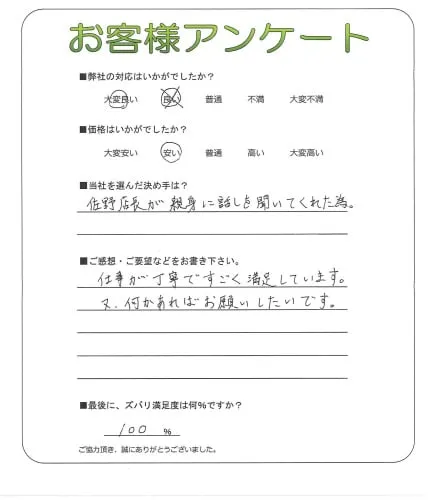 お客様アンケート
■弊社の対応はいかがでしたか？
大変良い 良い 普通 不満 大変不満
■価格はいかがでしたか？
大変安い 安い 普通 高い 大変高い
■当社を選んだ決め手は？
佐野店長が親身に話しを聞いてくれた為。
■ご感想・ご要望などをお書き下さい。
仕事が丁寧ですごく満足しています。
又、何かあればお願いしたいです。
■最後に、ズバリ満足度は何％ですか？
100 ％
ご協力頂き、誠にありがとうございました。